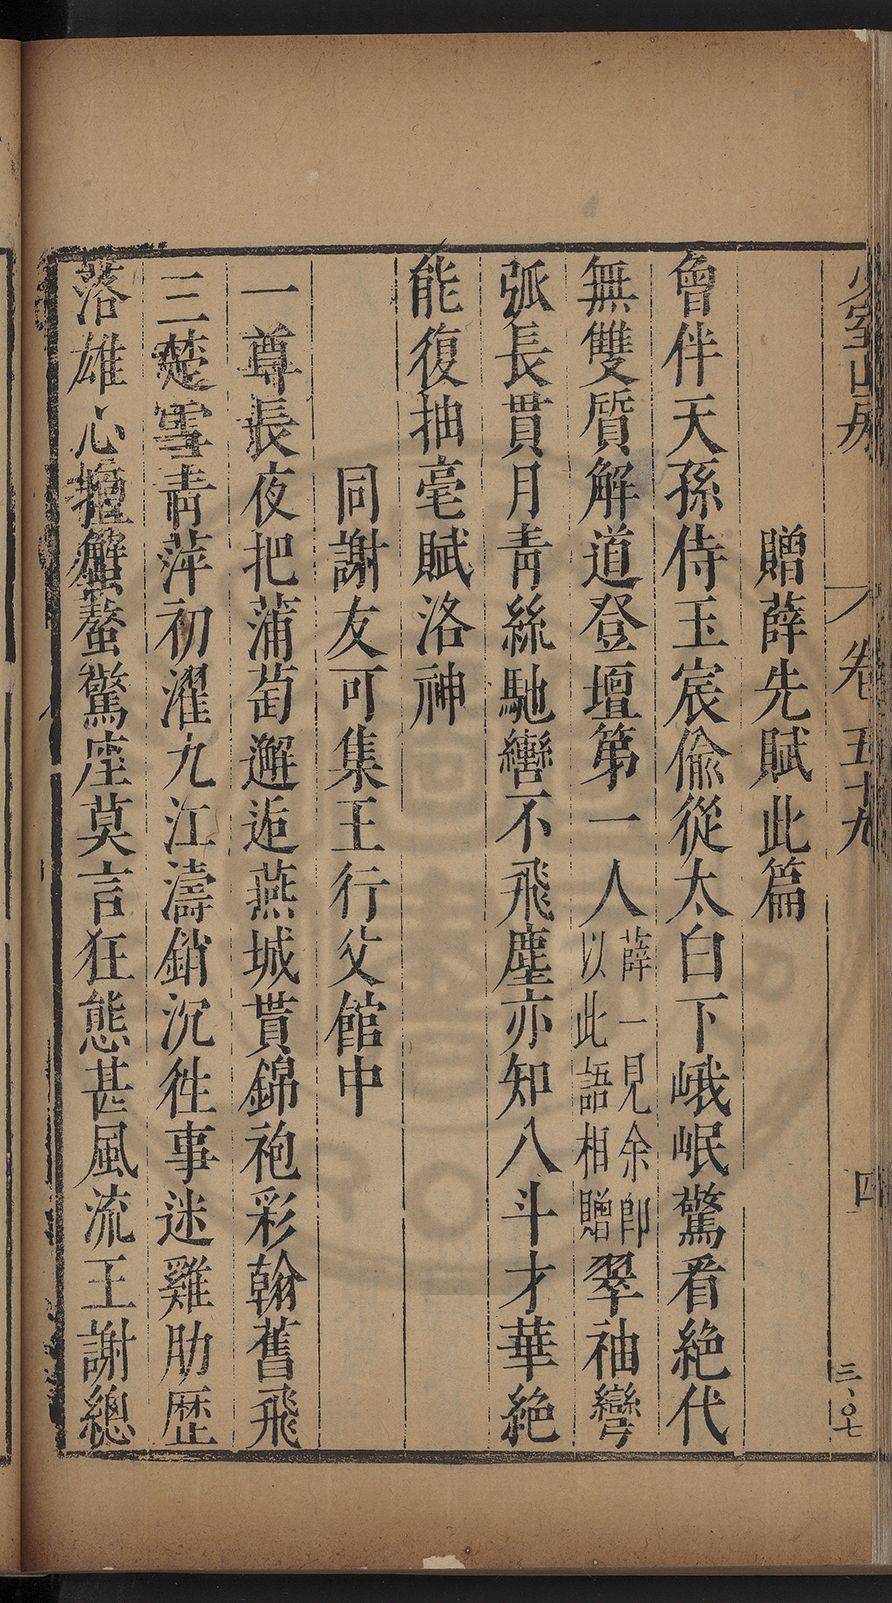 少室山房
卷五十九
四
三、〇七
贈薛先賦此篇
曾伴天孫侍玉宸偸從太白下峨岷驚看絶代
無雙質解道登壇第一人薛一見余卽以此語相贈翠袖彎
弧長貫月靑絲馳轡不飛塵亦知八斗才華絶
能復抽毫賦洛神
同謝友可集王行父館中
一尊長夜把蒲萄邂逅燕城貰錦袍彩翰舊飛
三楚雪靑萍初濯九江濤銷沉徃事迷雞肋歴
落雄心擅蟹螯驚座莫言狂態甚風流王謝總